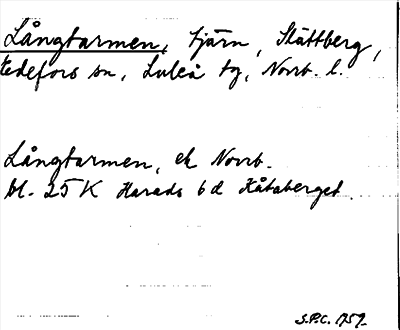 Långtarmen, tjärn, Slättberg,
Edefors sn, Luleå tg, Norrb. l.
Långtarmen, ek Norrb.
bl. 25 K Harads 6 d Kåtaberget.
S.P.C. 1959